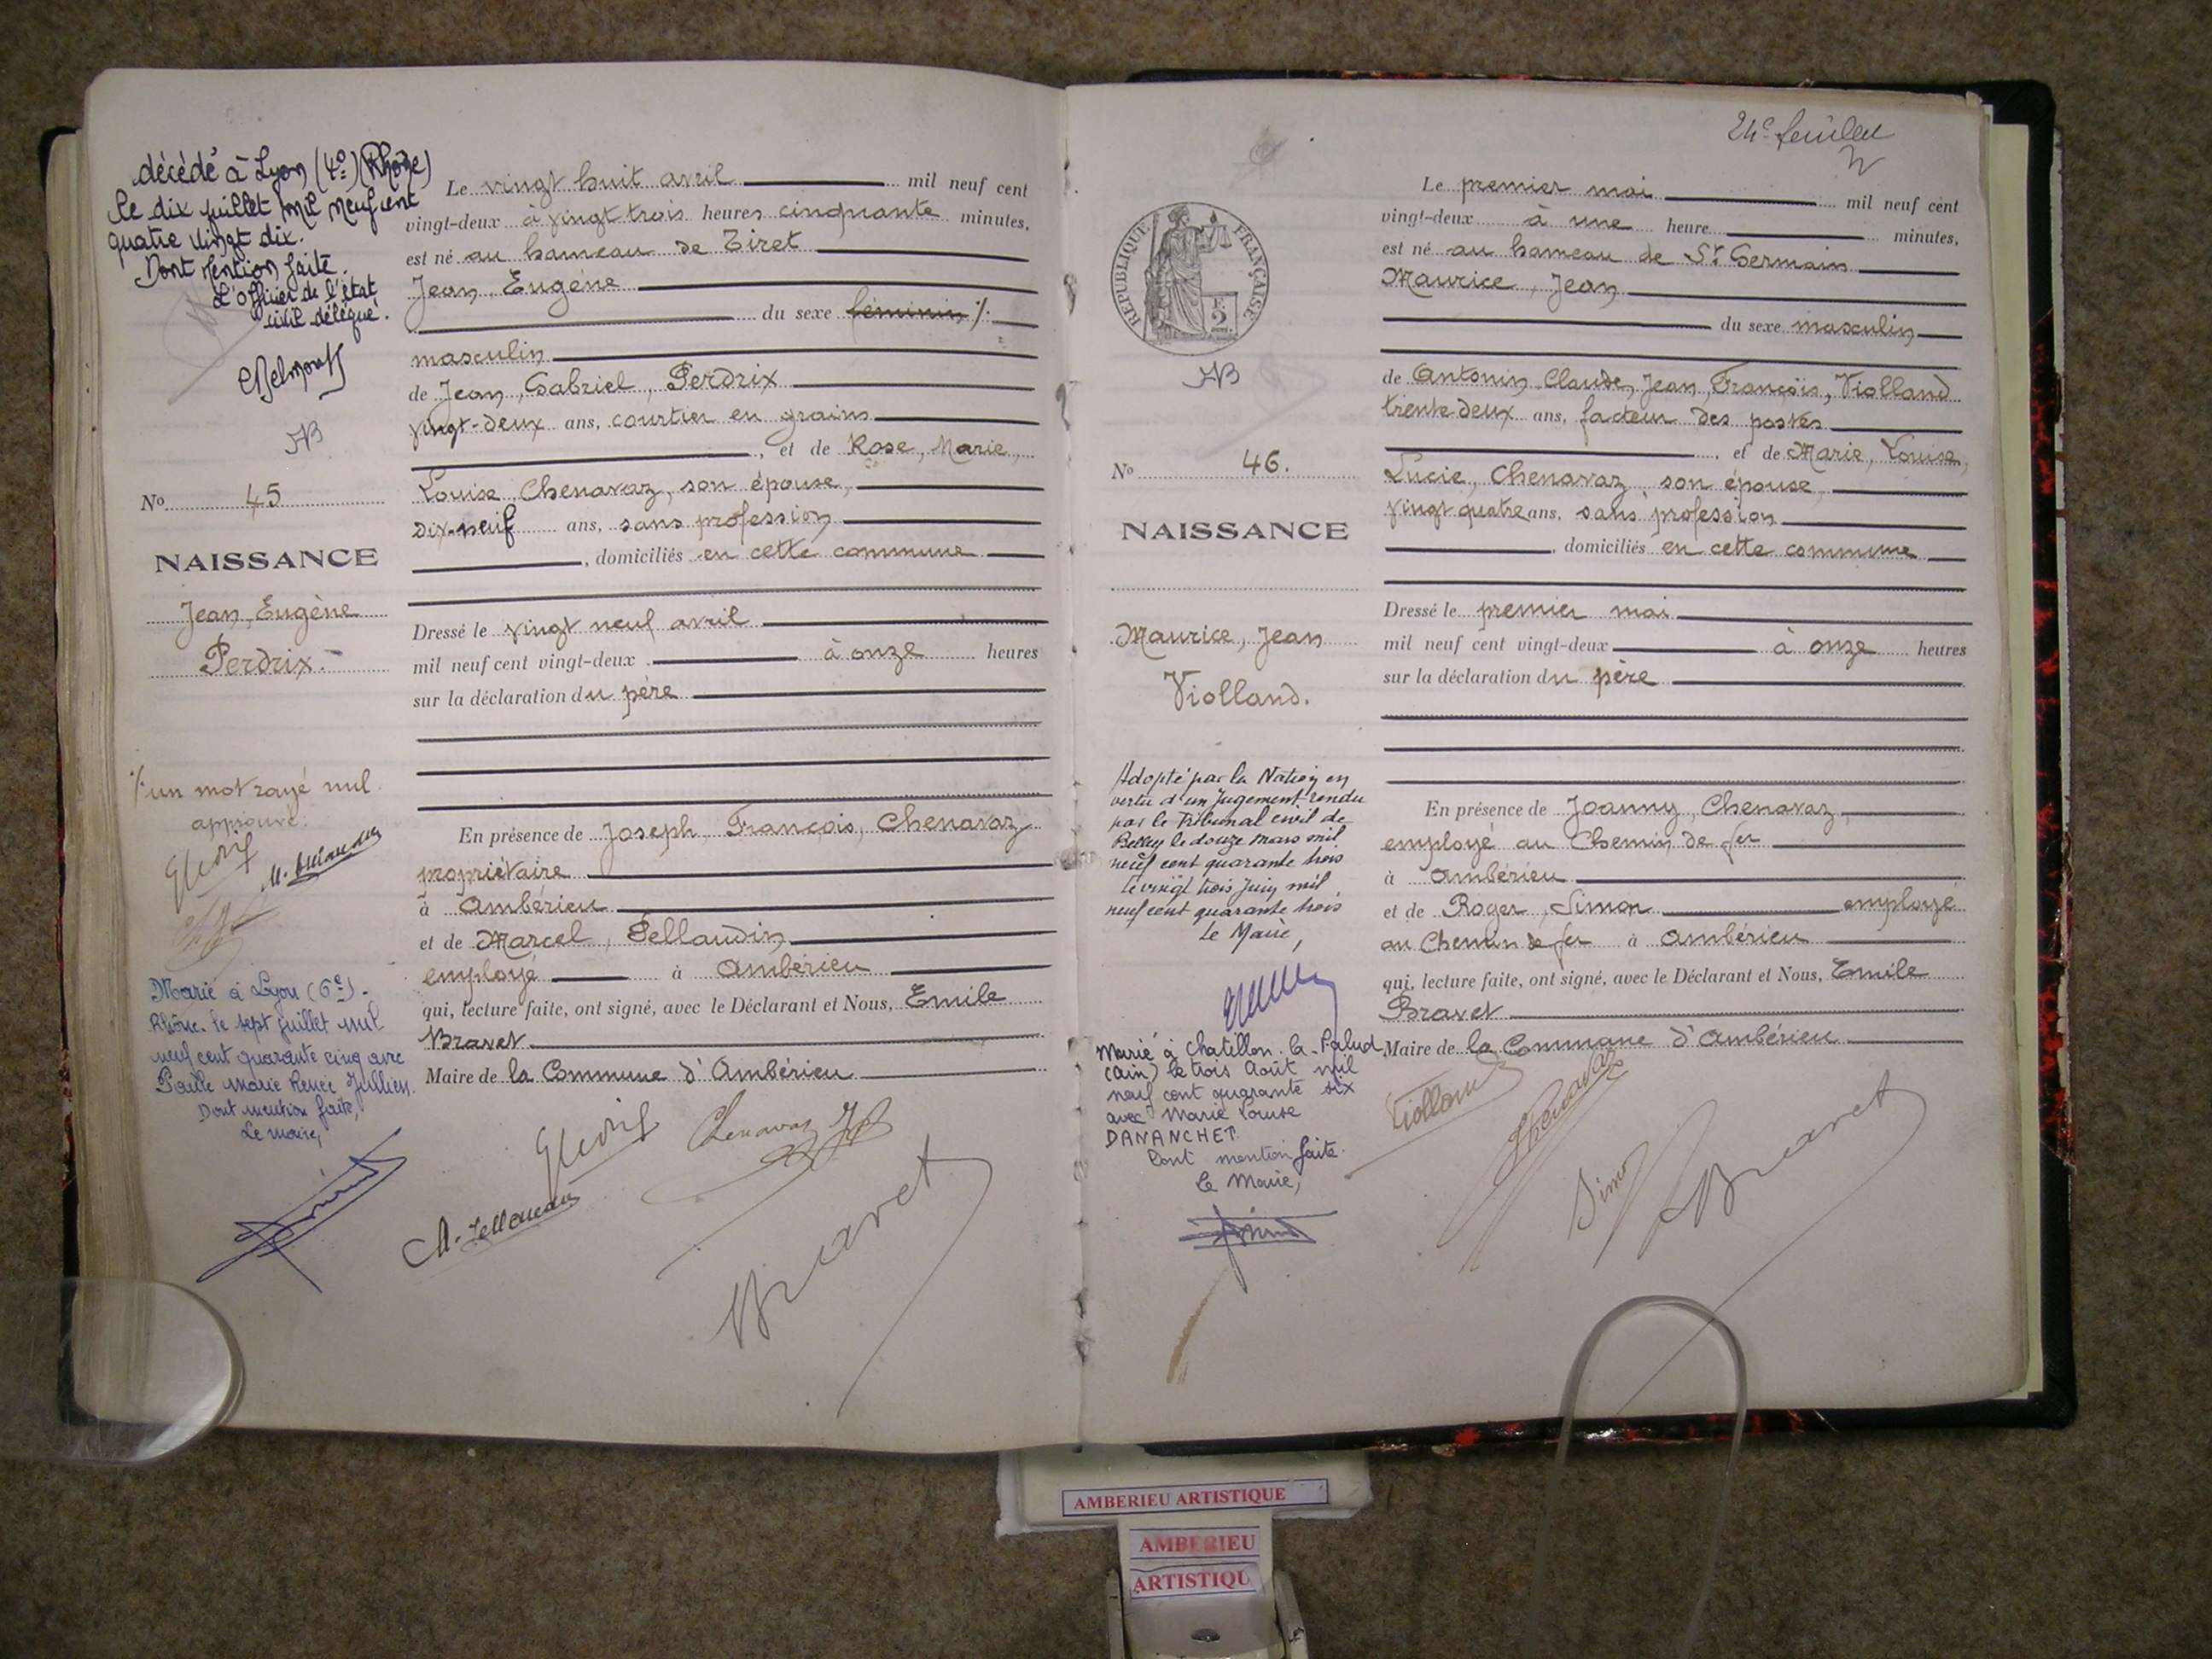 décédé à Lyon (4e) (Rhône)
le dix juillet mil neuf cent
quatre vingt dix.
Dont mention faite.
L'officier de l'état
civil délégué.
No 45
NAISSANCE
Jean, Eugène
Perdrix.
⁒ un mot rayé nul.
approuvé.
Marié à Lyon (6e) -
Rhône. le sept juillet mil
neuf cent quarante cinq avec
Paule Marie Renée Jullien.
Dont mention faite,
Le maire,
Le vingt huit avril mil neuf cent
vingt-deux à vingt trois heures cinquante minutes,
est né au hameau de Tiret
Jean, Eugène
du sexe féminin ⁒
masculin
de Jean, Gabriel, Perdrix
vingt-deux ans, courtier en grains
, et de Rose, Marie,
Louise, Chenavaz, son épouse,
dix-neuf ans, sans profession
, domiciliés en cette commune
Dressé le vingt neuf avril
mil neuf cent vingt-deux à onze heures
sur la déclaration du père
En présence de Joseph, François, Chenavaz
propriétaire
à Ambérieu
et de Marcel, Pellaudin
employé à Ambérieu
qui, lecture faite, ont signé, avec le Déclarant et Nous, Emile
Bravet
Maire de la Commune d'Ambérieu
Chenavaz
Bravet
24e feuillet
RÉPUBLIQUE FRANÇAISE
No 46.
NAISSANCE
Maurice, Jean
Violland.
Adopté par la Nation en
vertu d'un Jugement rendu
par le Tribunal civil de
Belley le douze mars mil
neuf cent quarante trois
le vingt trois Juin mil
neuf cent quarante trois
Le Maire,
Marié à Chatillon-la-Palud
(Ain) le trois Août mil
neuf cent quarante six
avec Marie Louise
DANANCHET.
Dont mention faite.
Le Maire,
Le premier mai mil neuf cent
vingt-deux à une heure minutes,
est né au hameau de St Germain
Maurice, Jean
du sexe masculin
de Antonin, Claude, Jean, François, Violland
trente deux ans, facteur des postes
, et de Marie, Louise,
Lucie, Chenavaz, son épouse,
vingt quatre ans, sans profession
, domiciliés en cette commune
Dressé le premier mai
mil neuf cent vingt-deux à onze heures
sur la déclaration du père
En présence de Joanny, Chenavaz,
employé au Chemin de fer
à Ambérieu
et de Roger, Simon employé
au Chemin de fer à Ambérieu
qui, lecture faite, ont signé, avec le Déclarant et Nous, Emile
Bravet
Maire de la Commune d'Ambérieu
Violland
Chenavaz
Simon
Bravet
AMBERIEU ARTISTIQUE
AMBERIEU
ARTISTIQU